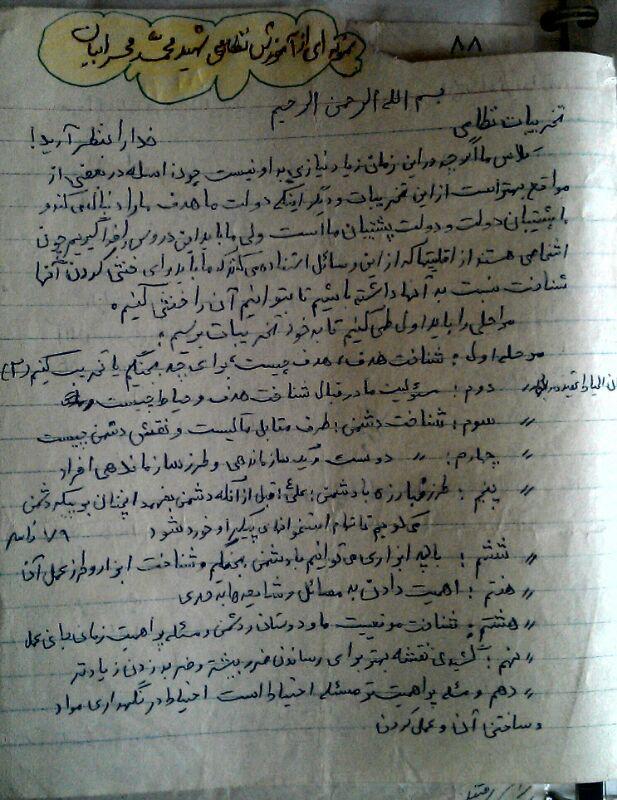 نمونه ای از آموزش نظامی شهید محمد محرابیان
۸۸
بسم الله الرحمن الرحیم
تخریبات نظامی
خدا را در نظر آرید!
کلاس ما اگر چه در این زمان زیاد نیازی به او نیست چون اسلحه در بعضی از
مواقع بهتر است از این تخریبات و دیگر اینکه دولت ما هدف ما را دنبال می کند و
ما پشتیبان دولت و دولت پشتیبان ما است ولی ما باید این دروس را فرا گیریم چون
اشخاصی هستند از اقلیتها که از این وسائل استفاده می کنند که ما باید برای خنثی کردن آنها
شناخت نسبت به آنها داشته باشیم تا بتوانیم آن را خنثی کنیم.
مراحلی را باید اول طی کنیم تا به خود تخریبات برسیم:
مرحله اول: شناخت هدف، هدف چیست، برای چه بجنگیم یا تخریب کنیم (۲)
〃 دوم: مسئولیت ما در قبال شناخت هدف و حیاط چیست
〃 سوم: شناخت دشمن: طرف مقابل ما کیست و نقش دشمن چیست
〃 چهارم: 〃 دوست سازماندهی و طرز سازماندهی افراد
〃 پنجم: طرز مبارزه با دشمن: علی: قبل از آنکه دشمن بفهمد آنچنان بر پیکر دشمن
می کوبیم تا تمام استخوانهای پیکر او خورد شود
〃 ششم: با چه ابزاری می توانیم با دشمن بجنگیم و شناخت ابزار و طرز عمل آن
〃 هفتم: اهمیت دادن به مسائل و شایعه ها به قدری
〃 هشتم: شناخت موقعیت ما و دوستان و دشمن و مسئله پر اهمیت زمانی با بی عمل
〃 نهم: کشیدن نقشه بهتر برای رساندن ضرر بیشتر و ضربه زدن زیادتر
〃 دهم و مسئله پر اهمیت تر مسئله احتیاط است احتیاط در نگهداری مواد
و ساختن آن و عمل کردن